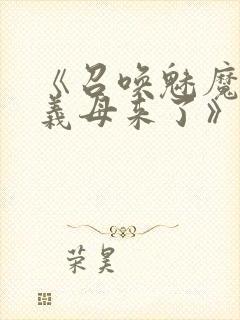 《召唤魅魔
义母来了》
荣昊